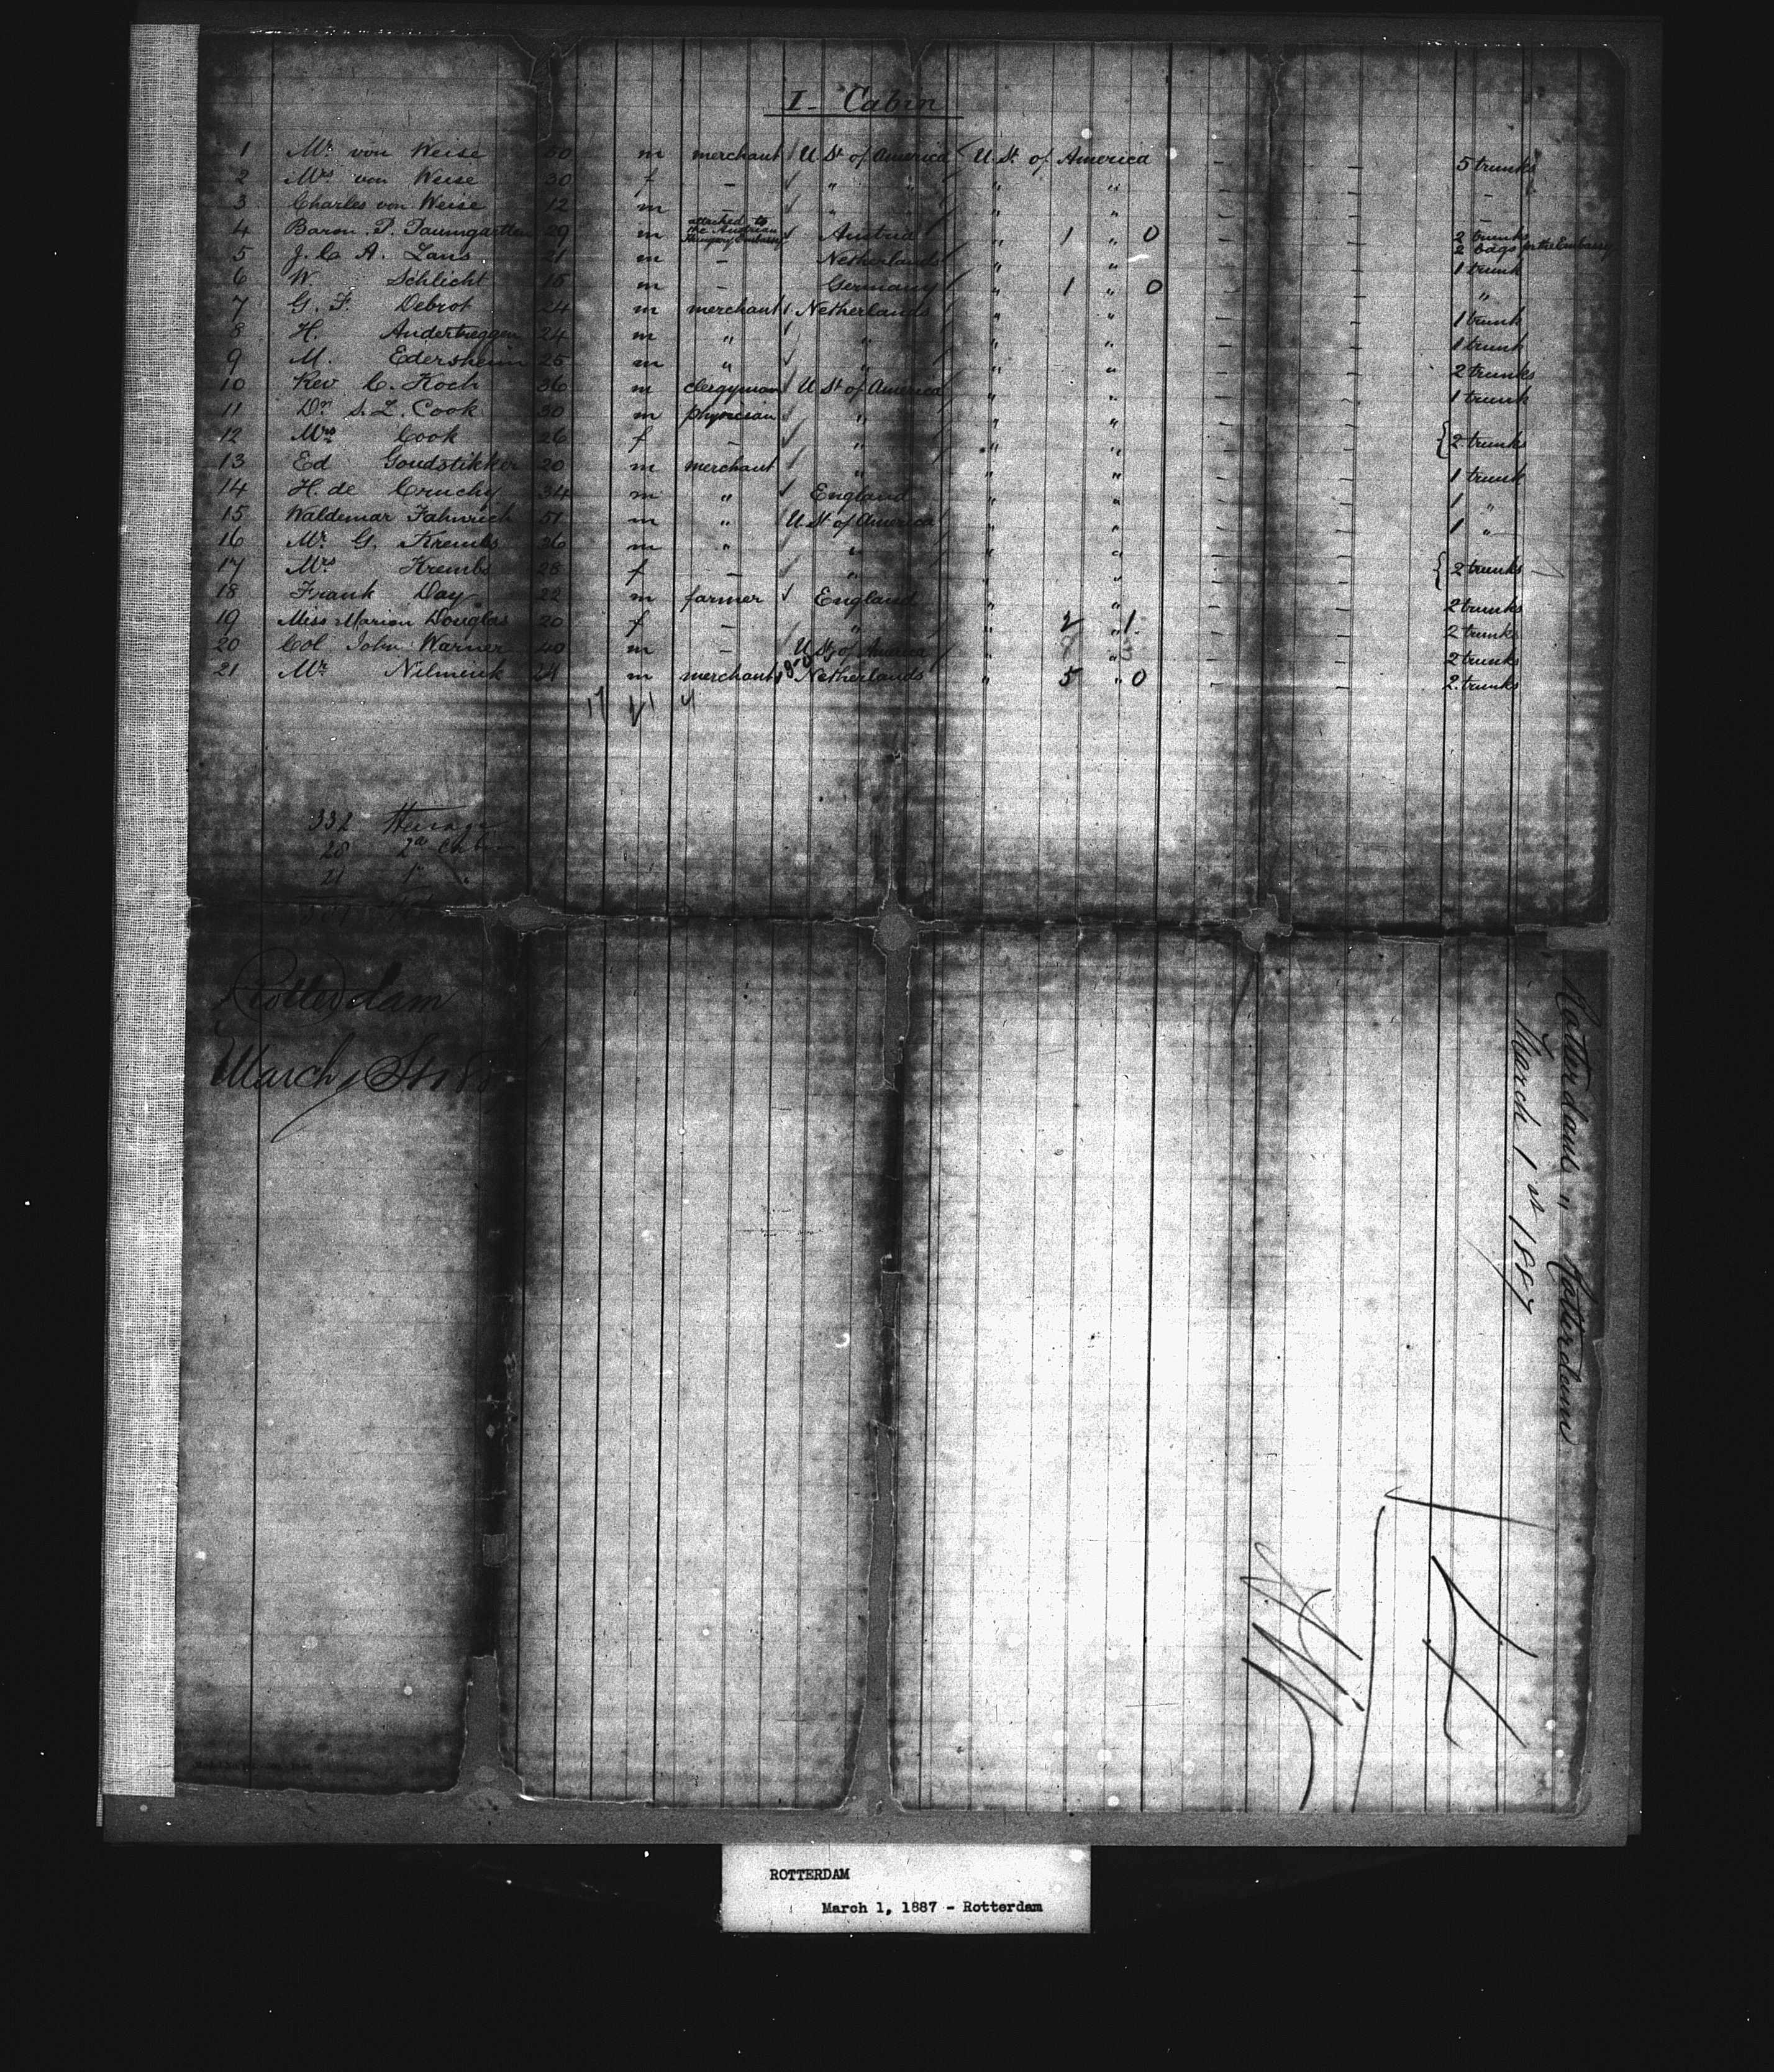 I- Cabin
1 Mr. von Weise 50 m merchant U St. of America U St. of America - - 5 trunks
2 Mrs von Weise 30 f - " " " " - - -
3 Charles von Weise 12 m - " " " " - - -
4 Baron P. Paumgartten 29 m attached to the Austrian Hungary Embassy Austria " 1 " 0 - - 2 trunks 2 bags for the Embassy
5 J. C. A. Lans 21 m - Netherlands " " - - 1 trunk
6 W. Schlicht 15 m - Germany " 1 " 0 - - "
7 G. F. Debrot 24 m merchant Netherlands " " - - 1 trunk
8 H. 24 m " " " " - - 1 trunk
9 M. Edersheim 25 m " " " " - - 2 trunks
10 Rev C. Koch 36 m clergyman U St of America " " - - 1 trunk
11 Dr S. L. Cook 30 m physician " " "
12 Mrs Cook 26 f - " " " - - { 2 trunks
13 Ed Goudstikker 20 m merchant " " " - - 1 trunk
14 H. de Cruchy 34 m " England " " - - 1 "
15 Waldemar 51 m " U St of America " " - - 1 "
16 Mr G. Krembs 36 m " " " "
17 Mrs Krembs 28 f - " " " - - { 2 trunks
18 Frank Day 22 m farmer England " " - - 2 trunks
19 Miss Marion Douglas 20 f - " " 2 " 1 - - 2 trunks
20 Col John Warner 40 m - U St of America " " - - 2 trunks
21 Mr 24 m merchant Netherlands " 5 " 0 - - 2 trunks
17 21 4
332 Steerage
28 2d Cab
21 1st "
Rotterdam
March 1 St 188
Rotterdam " Rotterdam
March 1 st 1887
ROTTERDAM
March 1, 1887 - Rotterdam